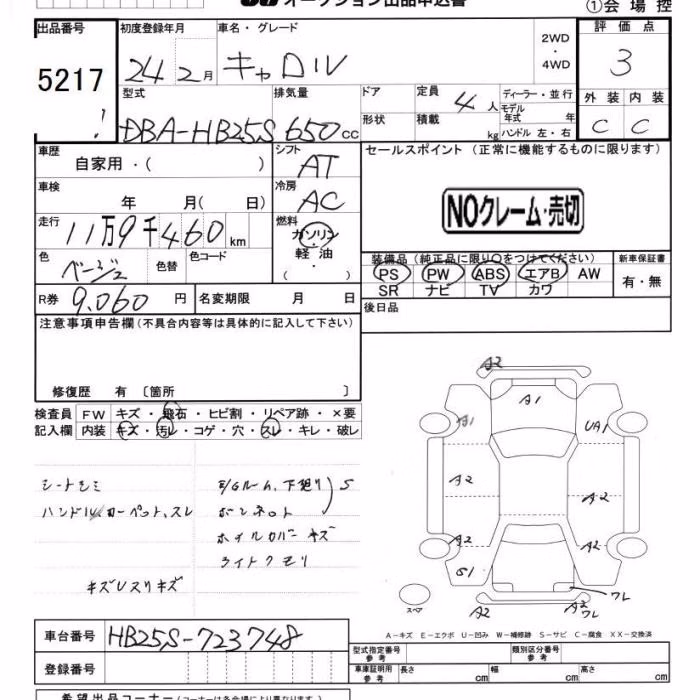 オークション出品申込書
①会場控
出品番号 初度登録年月 車名・グレード 2WD・4WD 評価点
5217 24 2月 キャロル 3
型式 排気量 ドア 定員 4人 ディーラー・並行 外装 内装
DBA-HB25S 650cc 形状 積載 kg モデル年式 年 ハンドル 左・右 C C
車歴 自家用・( ) シフト AT セールスポイント(正常に機能するものに限ります)
車検 年 月( 日) 冷房 AC NOクレーム・売切
走行 11万9千460km 燃料 ガソリン・軽油
色 ベージュ 色替 色コード 装備品(純正品に限り○をつけてください) 新車保証書
PS PW ABS エアB AW 有・無
SR ナビ TV カワ
R券 9,060円 名変期限 月 日 後日品
注意事項申告欄(不具合内容等は具体的に記入して下さい)
修復歴 有 〔箇所 〕
検査員 FW キズ・飛石・ヒビ割・リペア跡・×要
記入欄 内装 キズ・汚レ・コゲ・穴・スレ・キレ・破レ
シートシミ E/Gルーム、下廻り S
ハンドル、カーペット、スレ ボンネット
ホイルカバーキズ
ライトクモリ
キズUスリキズ
A2
A1
A1 UA1
A2 A2
A2 A2
S1
ワレ
スペア A2 A2 ワレ
A-キズ E-エクボ U-凹み W-補修跡 S-サビ C-腐食 XX-交換済
車台番号 HB25S-723748 型式指定番号 参考 類別区分番号 参考
登録番号 車庫証明用 参考 長さ cm 幅 cm 高さ cm
希望出品コーナー(コーナーは各会場により異なります。)